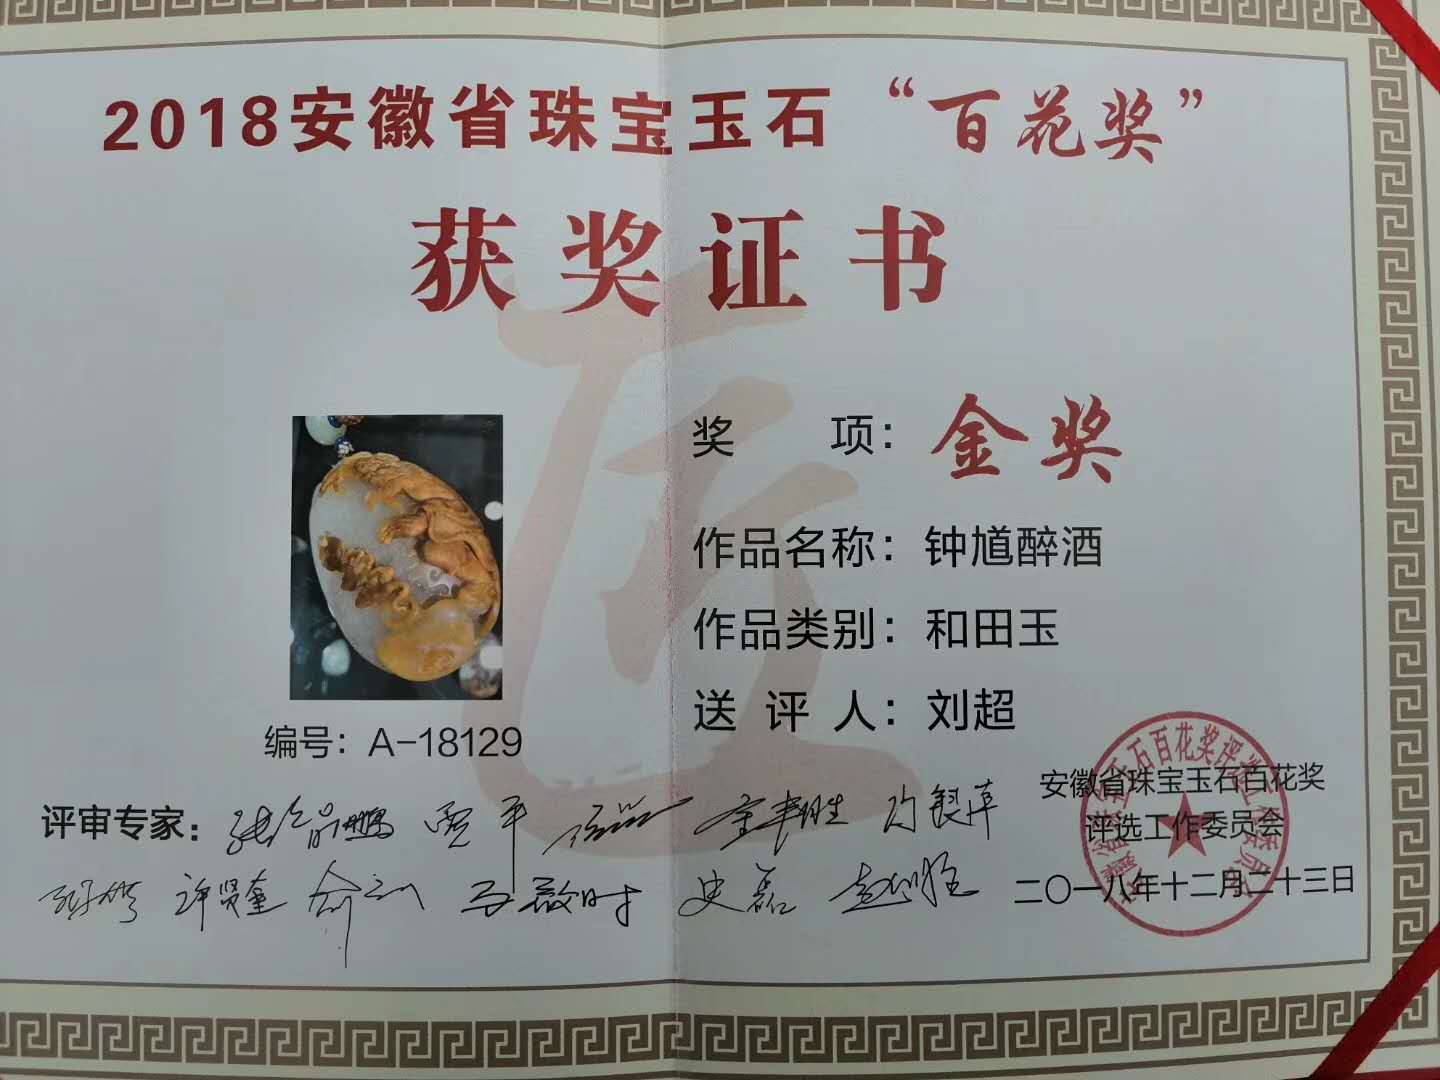 2018安徽省珠宝玉石“百花奖”
获奖证书
奖 项：金奖
作品名称：钟馗醉酒
作品类别：和田玉
送 评 人：刘超
编号：A-18129
评审专家：
贾平
许贤奎
史磊
安徽省珠宝玉石百花奖
评选工作委员会
二〇一八年十二月二十三日
匠